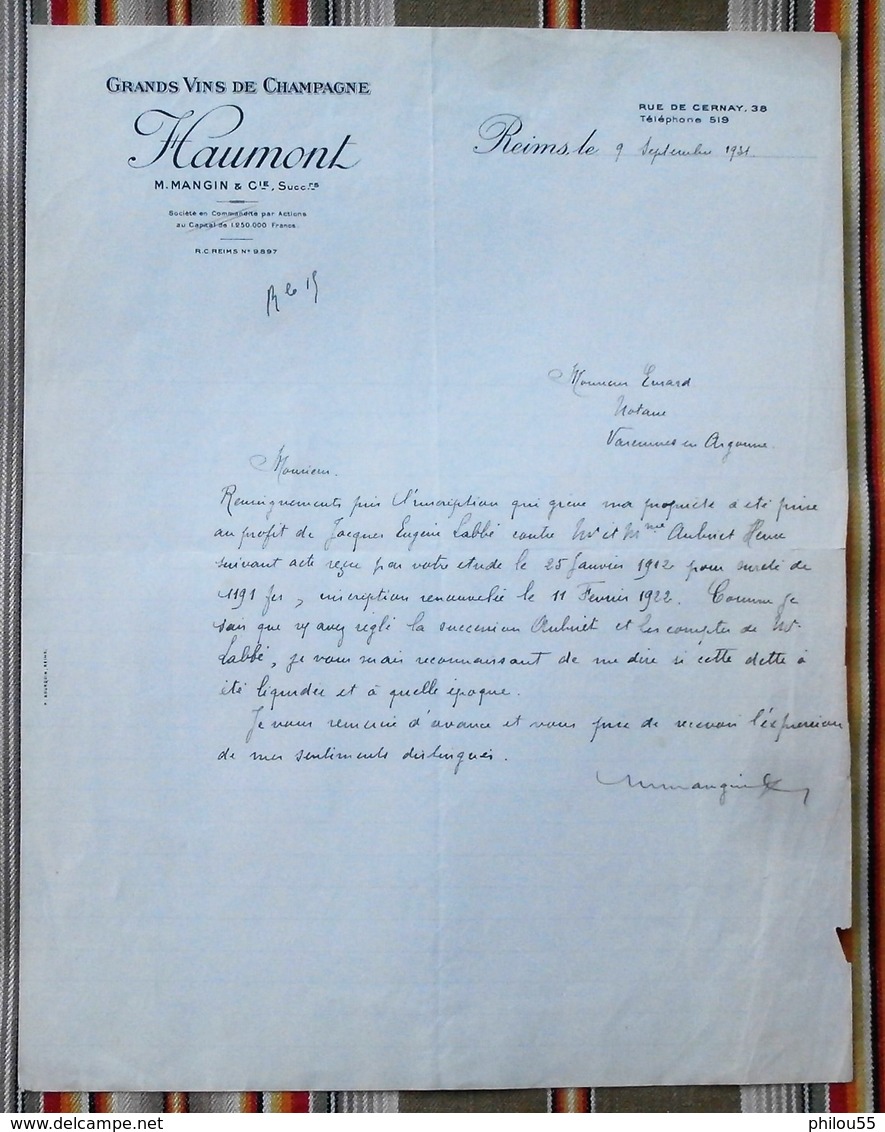 GRANDS VINS DE CHAMPAGNE
Haumont
M. MANGIN & CIE, Succrs
Société en Commandite par Actions
au Capital de 1.250.000 Francs
R.C. REIMS No 9.897
RUE DE CERNAY, 38
Téléphone 519
Reims, le 9 Septembre 1931
R le 15
Monsieur Evrard
Notaire
Varennes en Argonne
Monsieur.
Renseignements pris l'inscription qui grève ma propriété a été prise
au profit de Jacques Eugène Labbé contre Mr et Mme Aubriet Henri
suivant acte reçu par votre etude le 25 Janvier 1912 pour sureté de
1191 frs, inscription renouvelée le 11 Février 1922. Comme je
sais que avez réglé la succession Aubriet et les comptes de Mr
Labbé, je vous serais reconnaissant de me dire si cette dette a
été liquidée et à quelle époque.
Je vous remercie d'avance et vous prie de recevoir l'expression
de mes sentiments distingués.
Mangin
philou55